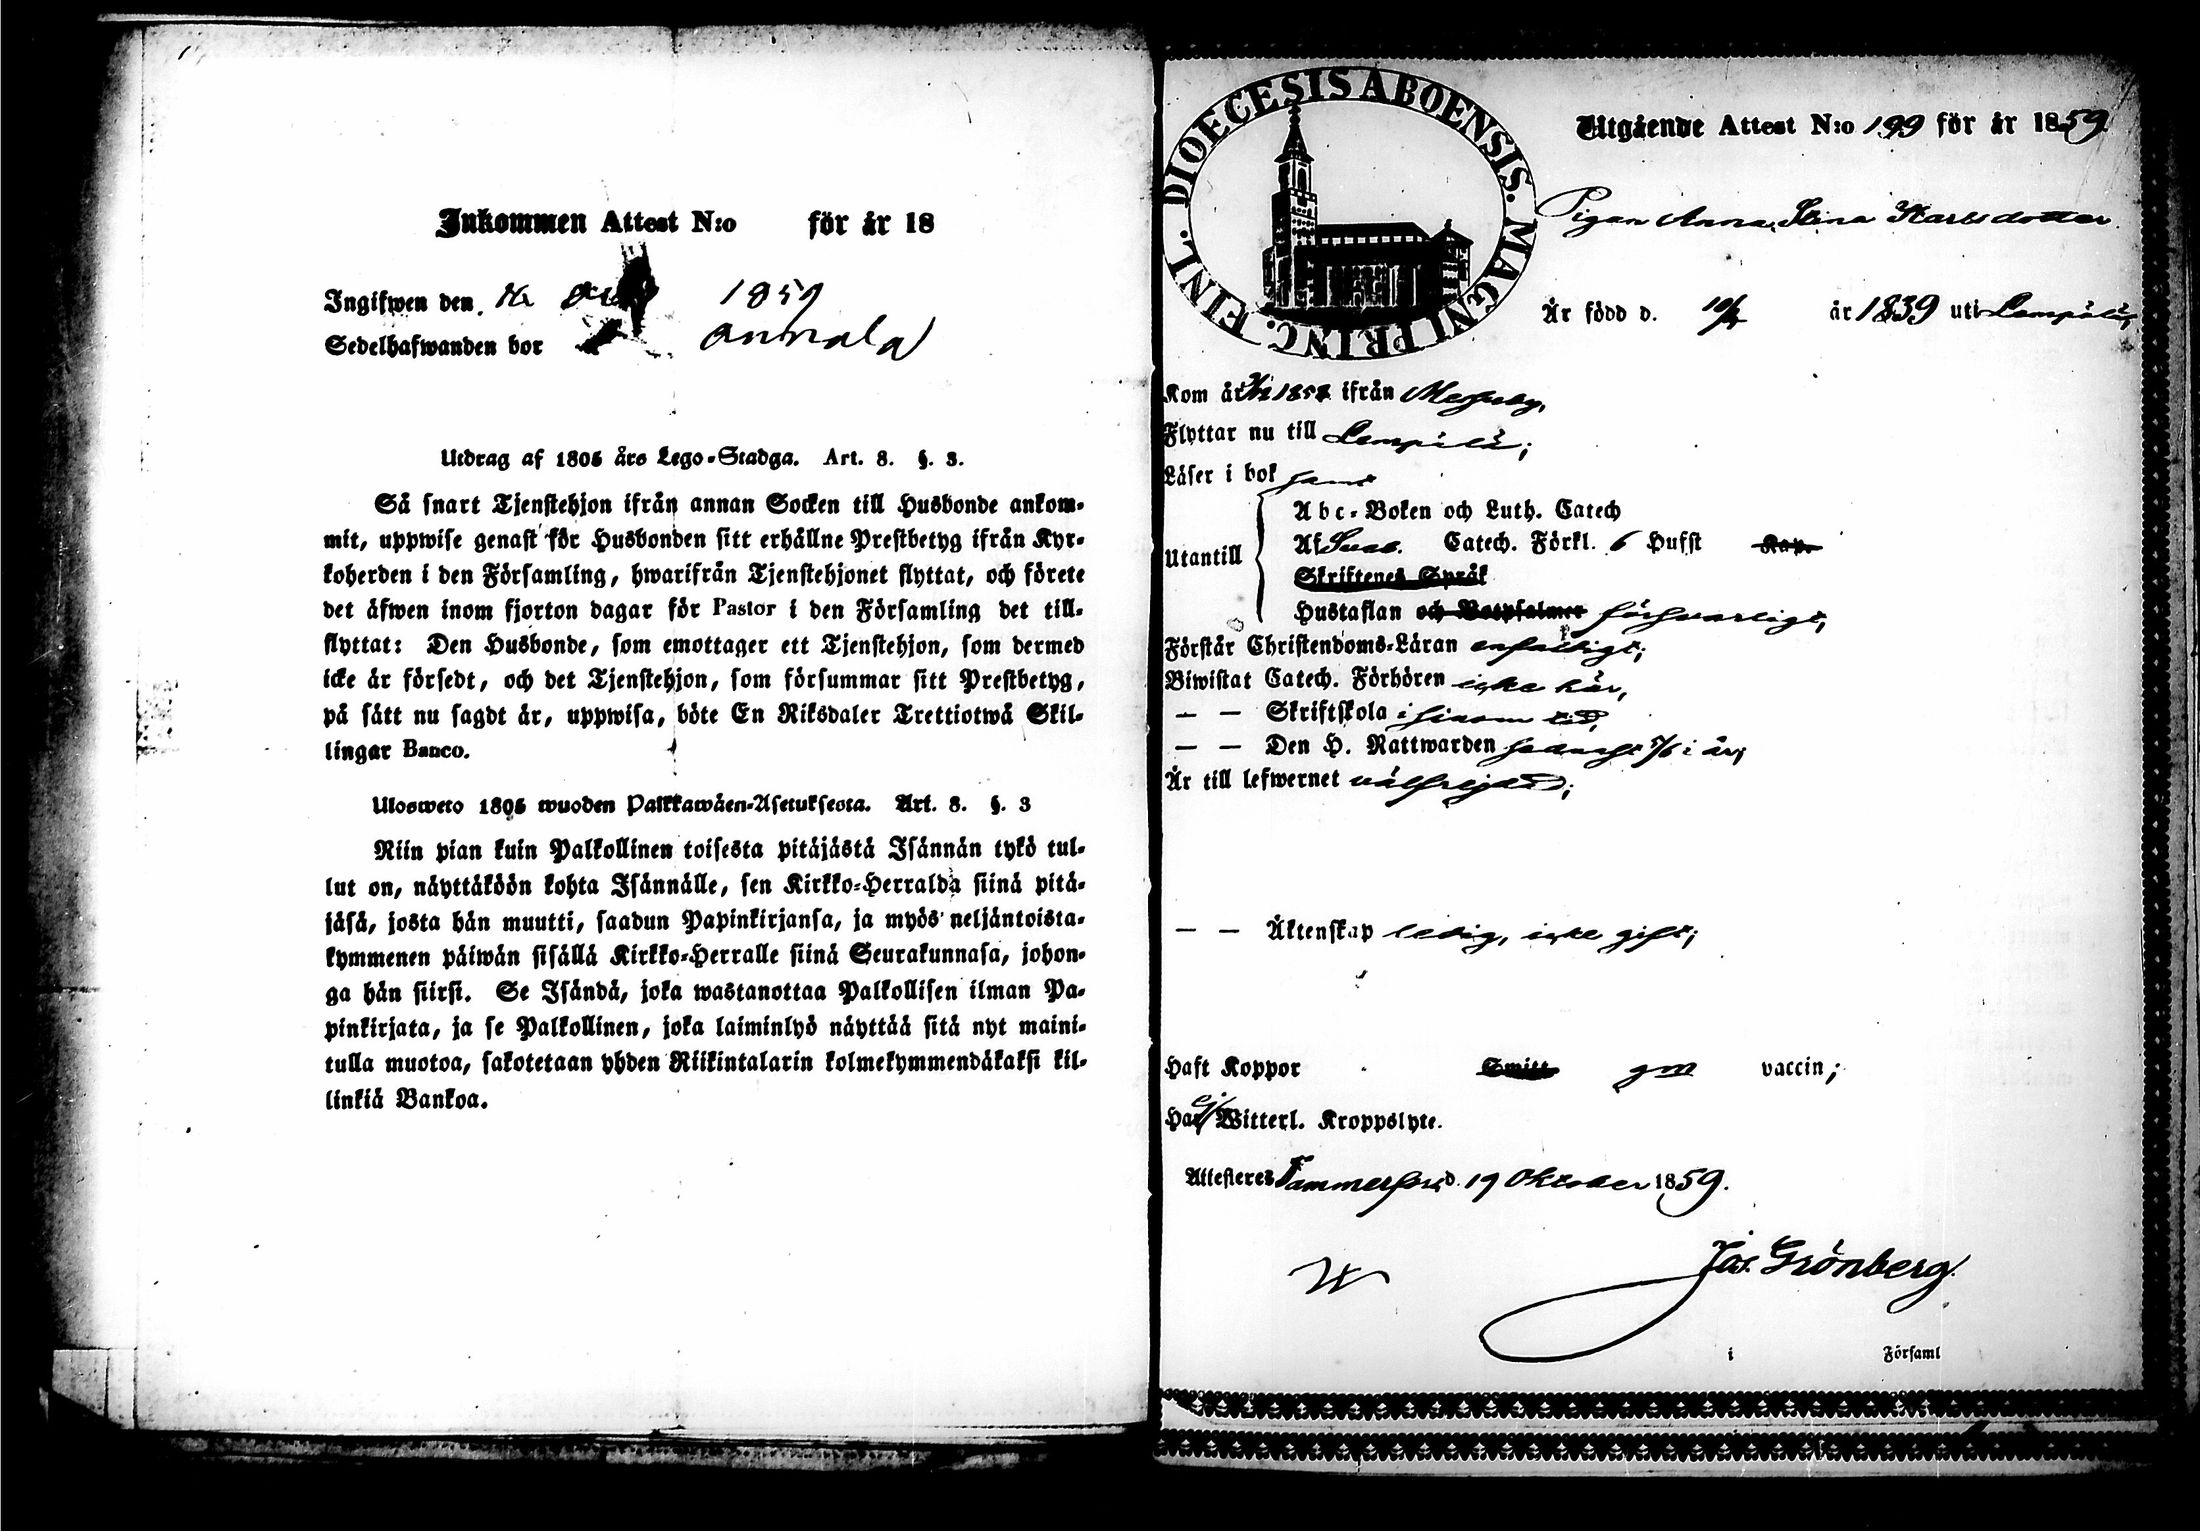 Inkommen Attest N:o för år 18
Ingifwen den 1859
Sedelhafwanden bor Annala
Utdrag af 1805 års Lego-Stadga. Art. 8. §. 3.
Så snart Tjenstehjon ifrån annan Socken till Husbonde ankom-
mit, uppwise genast för Husbonden sitt erhållne Prestbetyg ifrån Kyr-
koherden i den Församling, hwarifrån Tjenstehjonet flyttat, och förete
det äfwen inom fjorton dagar för Pastor i den Församling det till-
flyttat: Den Husbonde, som emottager ett Tjenstehjon, som dermed
icke är försedt, och det Tjenstehjon, som försummar sitt Prestbetyg,
på sätt nu sagdt är, uppwisa, böte En Riksdaler Trettiotwå Skil-
lingar Banco.
Ulosweto 1805 wuoden Palkkawäen-Asetuksesta. Art. 8. §. 3
Niin pian kuin Palkollinen toisesta pitäjästä Isännän tykö tul-
lut on, näyttäköön kohta Isännälle, sen Kirkko-Herralda siinä pitä-
jäsä, josta hän muutti, saadun Papinkirjansa, ja myös neljäntoista-
kymmenen päiwän sisällä Kirkko-Herralle siinä Seurakunnasa, johon-
ga hän siirsi. Se Isändä, joka wastanottaa Palkollisen ilman Pa-
pinkirjata, ja se Palkollinen, joka laiminlyö näyttää sitä nyt maini-
tulla muotoa, sakotetaan yhden Riikintalarin kolmekymmendäkaksi kil-
linkiä Bankoa.
FINL. DIOECESIS ABOENSIS. MAGNI PRINC.
Utgående Attest N:o 199 för år 1859
Pigan Anna Stina Karlsdotter
Är född d. år 1839 uti Lempälä,
Kom år 1858 ifrån Messuby,
Flyttar nu till Lempälä;
Läser i bok
Utantill
Abc-Boken och Luth. Catech
Af Sveb. Catech. Förkl. 6 Hufst Kap.
Skriftenes Språk
Hustaflan och Botpsalmer försvarligt,
Förstår Christendoms-Läran enfaldigt;
Biwistat Catech. Förhören icke här,
— — Skriftskola i sinom tid,
— — Den H. Nattwarden senast i år;
Är till lefwernet välfrejdad;
— — Äktenskap ledig, icke gift;
Haft Koppor Smitt gm vaccin;
Har ej Witterl. Kroppslyte.
Attesteres Tammerfors d. 19 Oktober 1859.
Jos. Grönberg.
i Församl